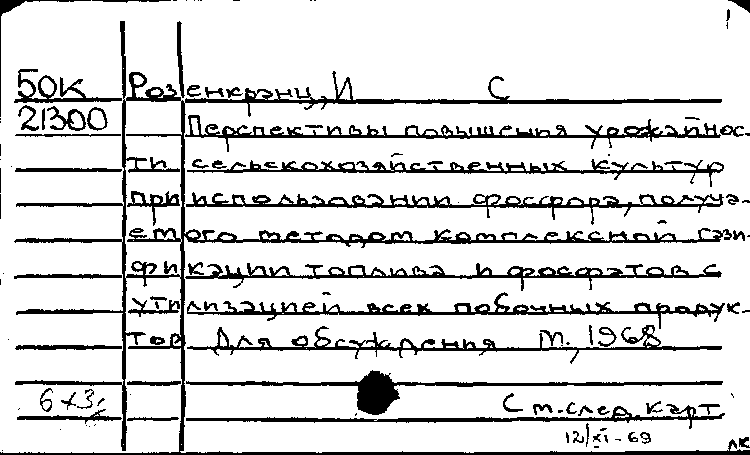 1
50К Розенкранц, И С
21300 Перспективы повышения урожайнос-
ти сельскохозяйственных культур
при использовании фосфора, получа-
емого методом комплексной гази-
фикации топлива и фосфатов с
утилизацией всех побочных продук-
тов Для обсуждения М., 1968
См. след. карт
12/XI-69
лк